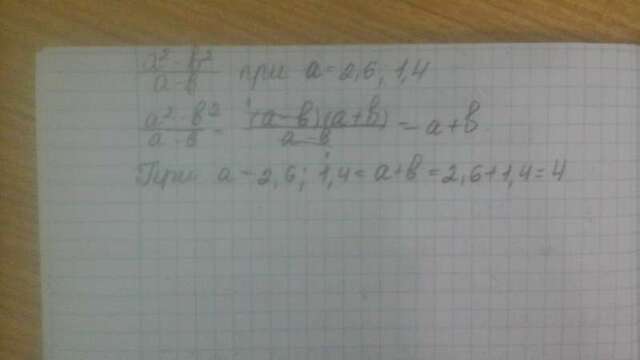 a² - b² / a - b при a = 2,6; 1,4
a² - b² / a - b = (a - b)(a + b) / a - b = a + b.
При a = 2,6; 1,4 = a + b = 2,6 + 1,4 = 4